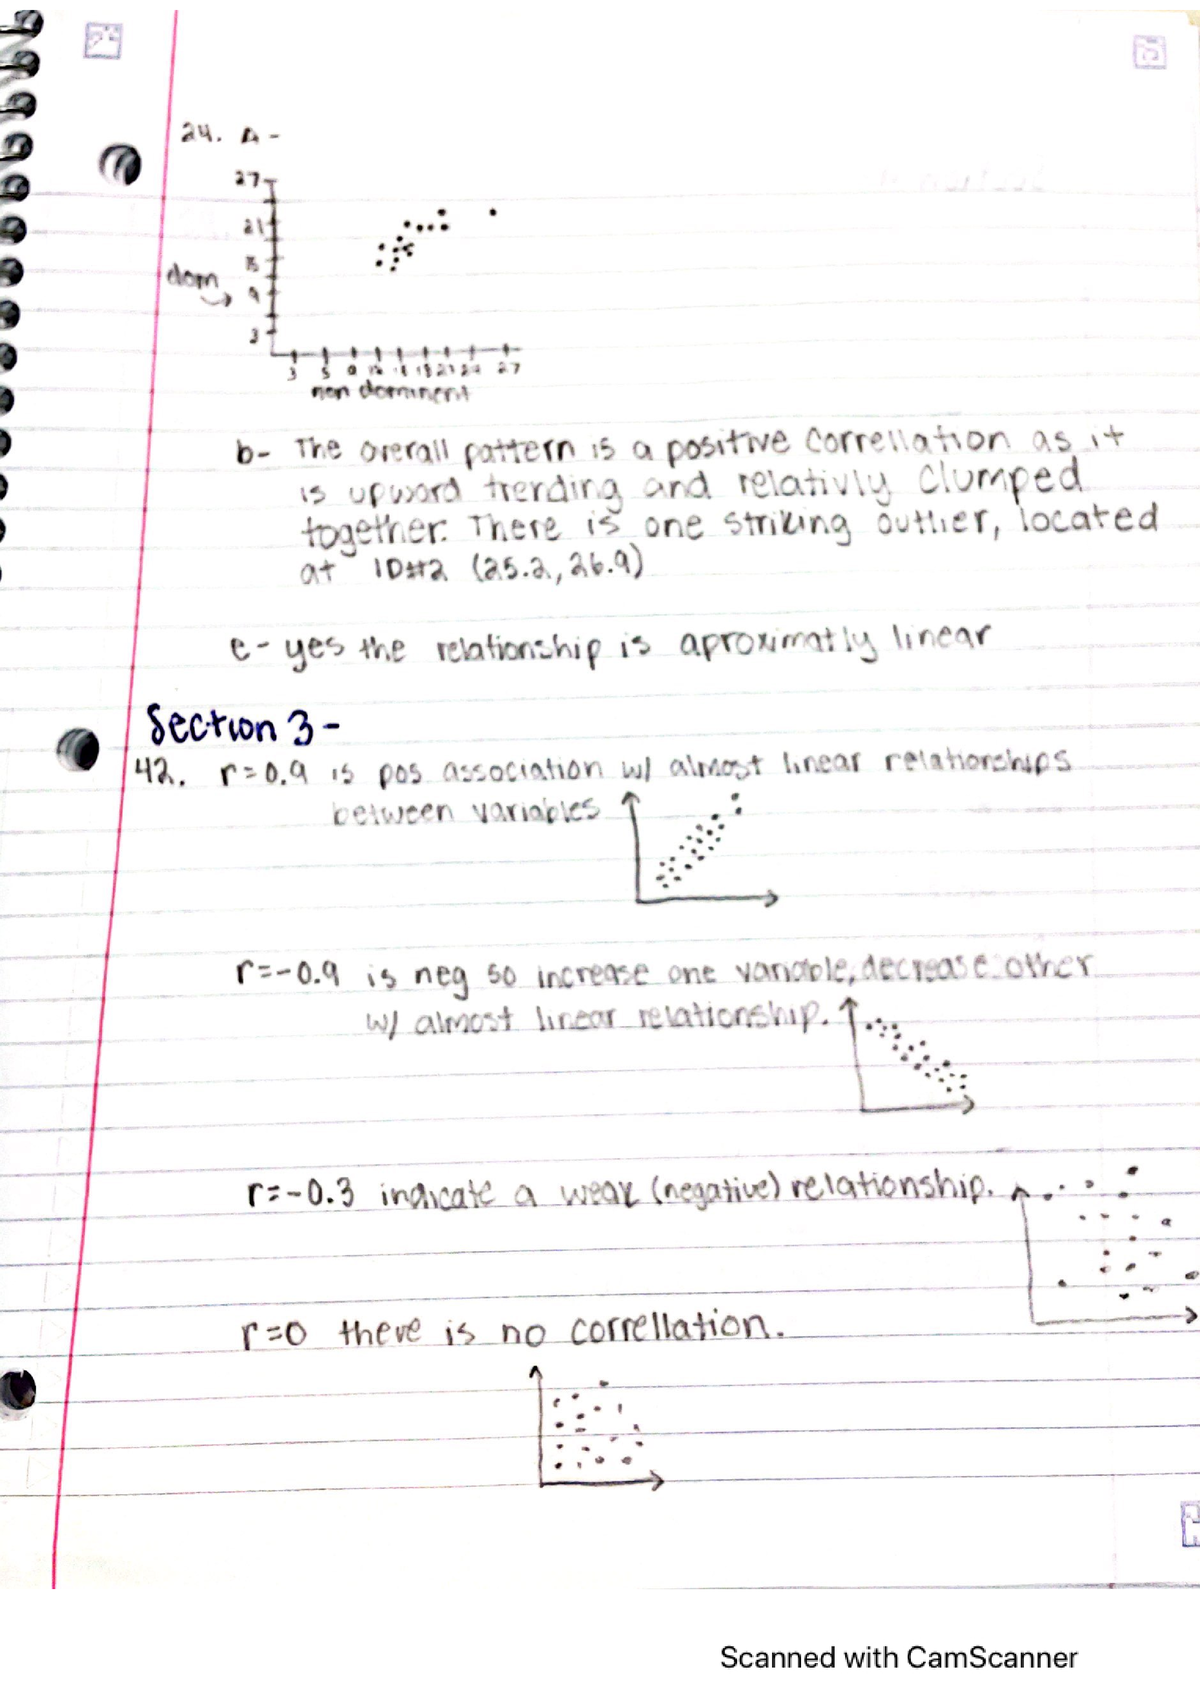 24. A -
27
21
15
dom
9
3
3 9 18 21 24 27
non dominent
b- The overall pattern is a positive correllation as it
is upward trending and relativly clumped
together. There is one striking outlier, located
at ID#2 (25.2, 26.9)
e- yes the relationship is aproximatly linear
Section 3 -
42. r=0.9 is pos association w/ almost linear relationships
between variables
r=-0.9 is neg so increase one variable, decrease other
w/ almost linear relationship.
r=-0.3 indicate a weak (negative) relationship.
r=0 there is no correllation.
Scanned with CamScanner